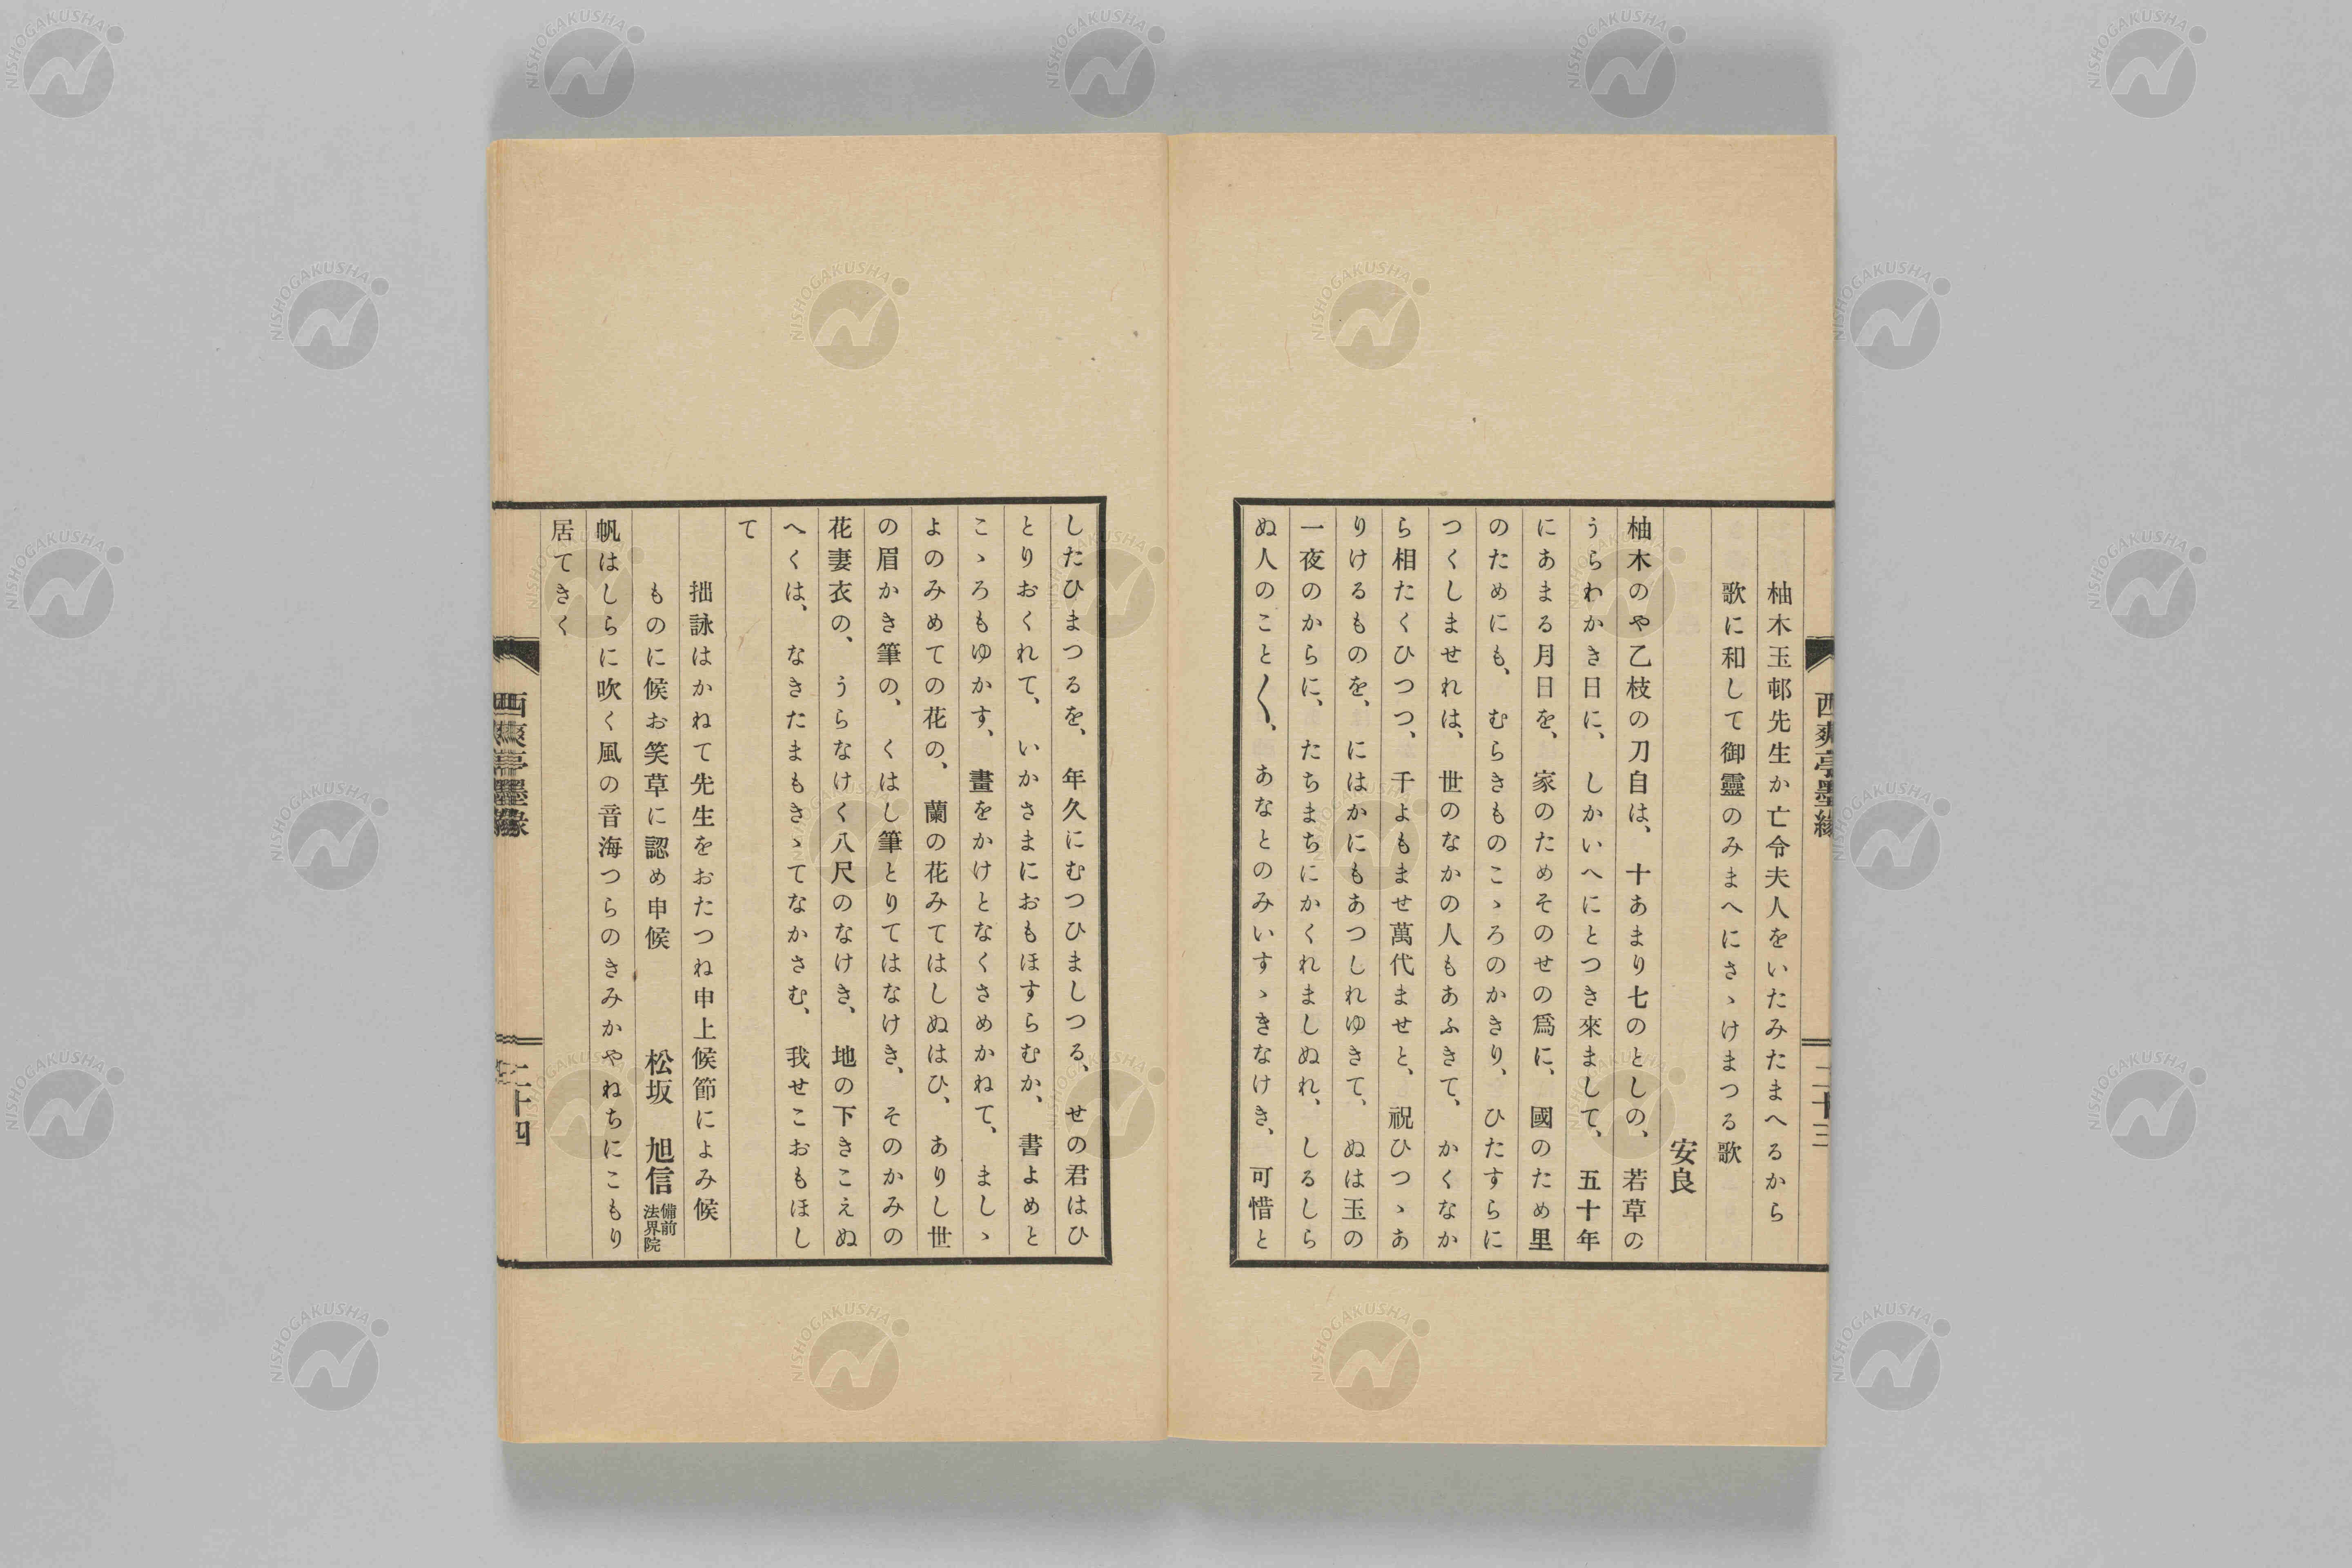 西爽亭墨緣
二十三
柚木玉邨先生か亡令夫人をいたみたまへるから
歌に和して御靈のみまへにさゝけまつる歌
安良
柚木のや乙枝の刀自は、十あまり七のとしの、若草の
うらわかき日に、しかいへにとつき來まして、五十年
にあまる月日を、家のためそのせの爲に、國のため里
のためにも、むらきものこゝろのかきり、ひたすらに
つくしませれは、世のなかの人もあふきて、かくなか
ら相たくひつつ、千よもませ萬代ませと、祝ひつゝあ
りけるものを、にはかにもあつしれゆきて、ぬは玉の
一夜のからに、たちまちにかくれましぬれ、しるしら
ぬ人のこと〱、あなとのみいすゝきなけき、可惜と
したひまつるを、年久にむつひましつる、せの君はひ
とりおくれて、いかさまにおもほすらむか、書よめと
こゝろもゆかす、畫をかけとなくさめかねて、ましゝ
よのみめての花の、蘭の花みてはしぬはひ、ありし世
の眉かき筆の、くはし筆とりてはなけき、そのかみの
花妻衣の、うらなけく八尺のなけき、地の下きこえぬ
へくは、なきたまもきゝてなかさむ、我せこおもほし
て
拙詠はかねて先生をおたつね申上候節によみ候
ものに候お笑草に認め申候　松坂　旭信 備前法界院
帆はしらに吹く風の音海つらのきみかやねちにこもり
居てきく
西爽亭墨緣
二十四
NISHOGAKUSHA